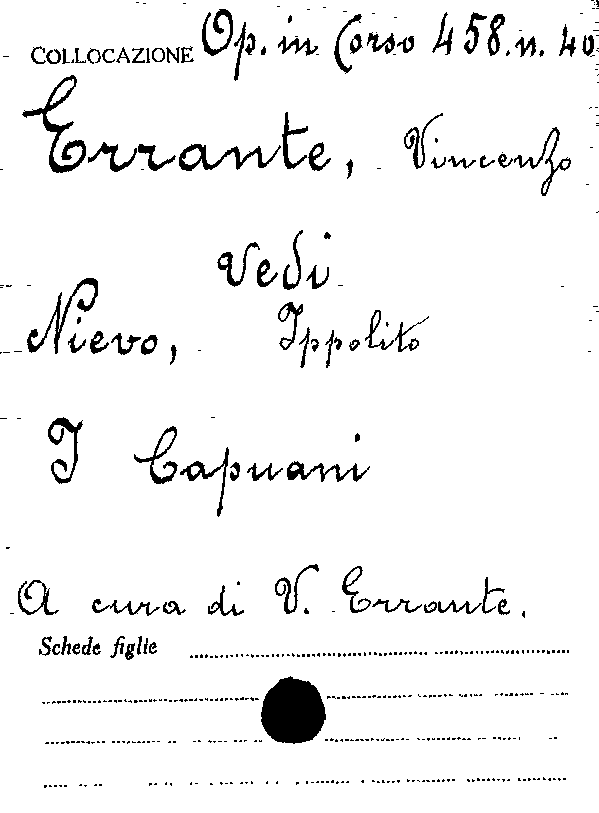 COLLOCAZIONE Op. in Corso 458. n. 40
Errante, Vincenzo
Vedi
Nievo, Ippolito
I Capuani
A cura di V. Errante.
Schede figlie